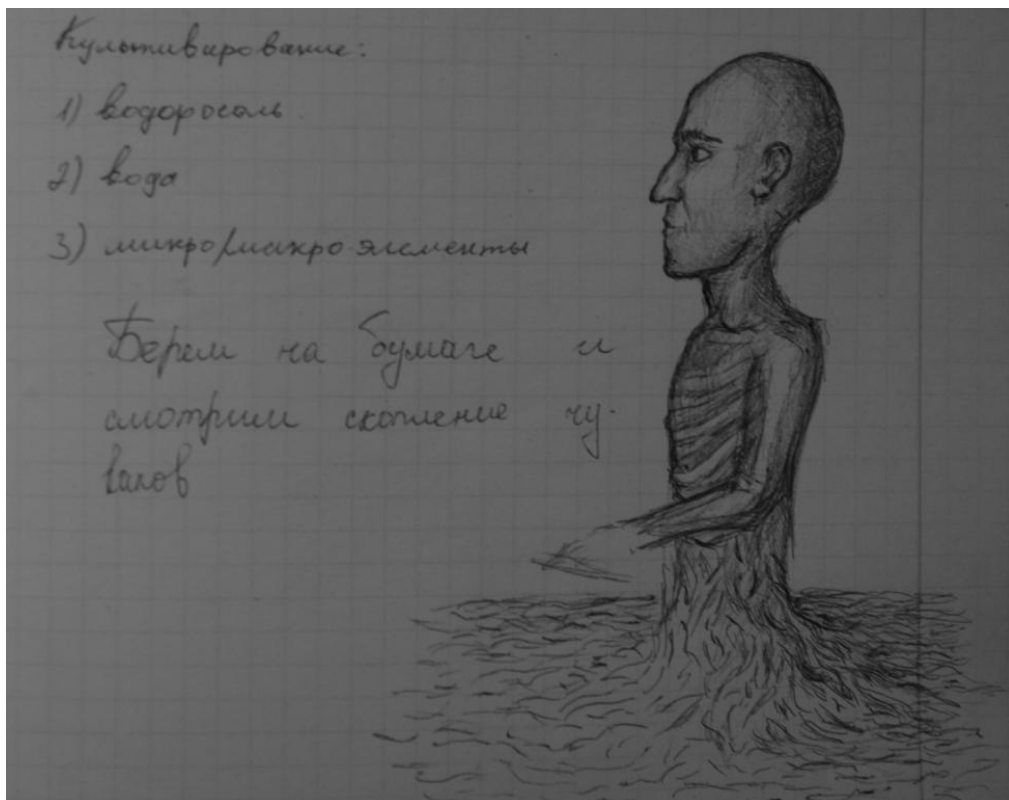 Культивирование:
1) водоросль
2) вода
3) микро/макроэлементы
Берем на бумаге и
смотрим скопление чу-
ваков